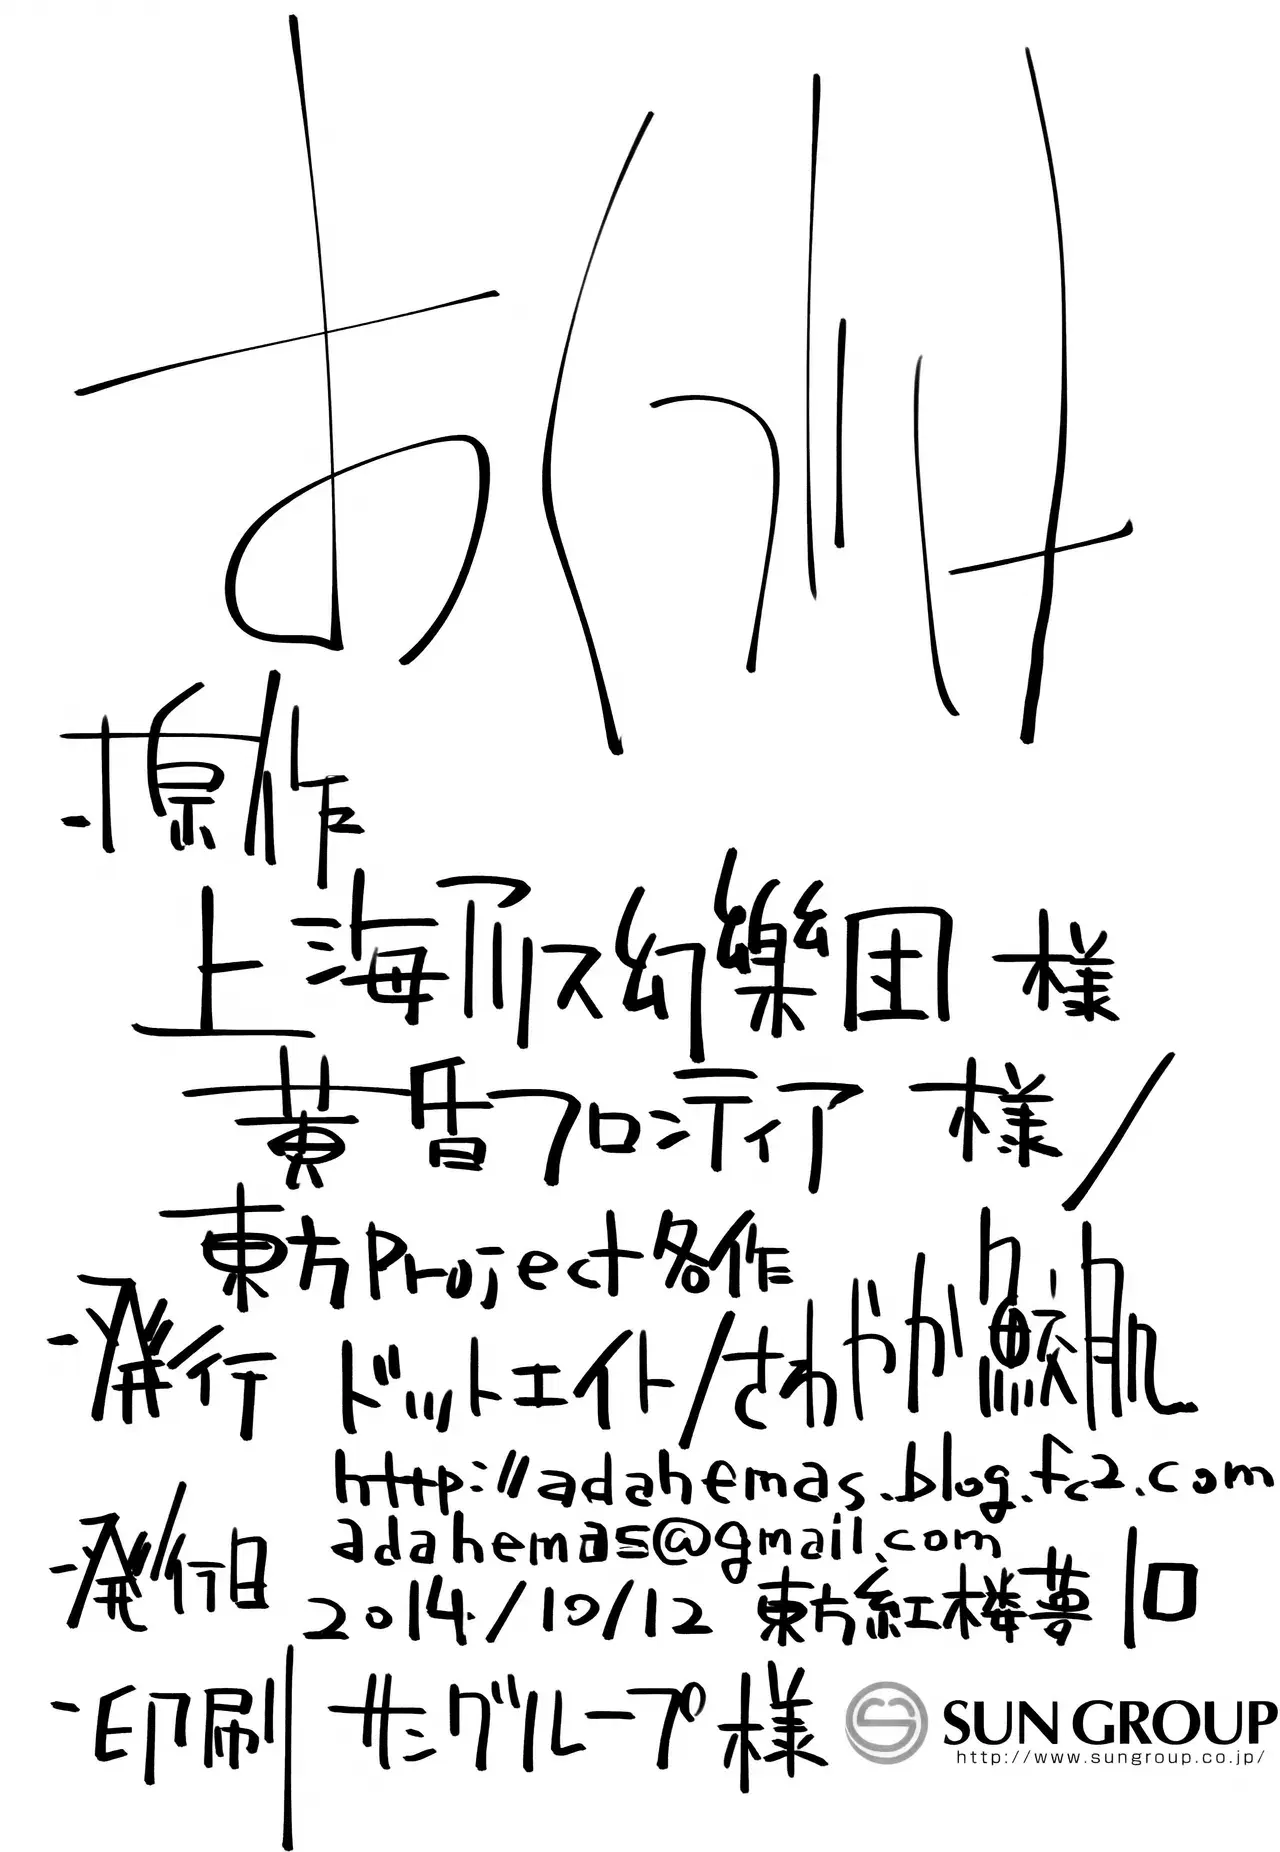 おくづけ
-原作
上海アリス幻樂団 様
黄昏フロンティア 様/
東方Project各作
-発行 ドットエイト/さわやか鮫肌
http://adahemas.blog.fc2.com
adahemas@gmail.com
-発行日 2014/10/12 東方紅楼夢10
-印刷 サングループ様 SUN GROUP
http://www.sungroup.co.jp/